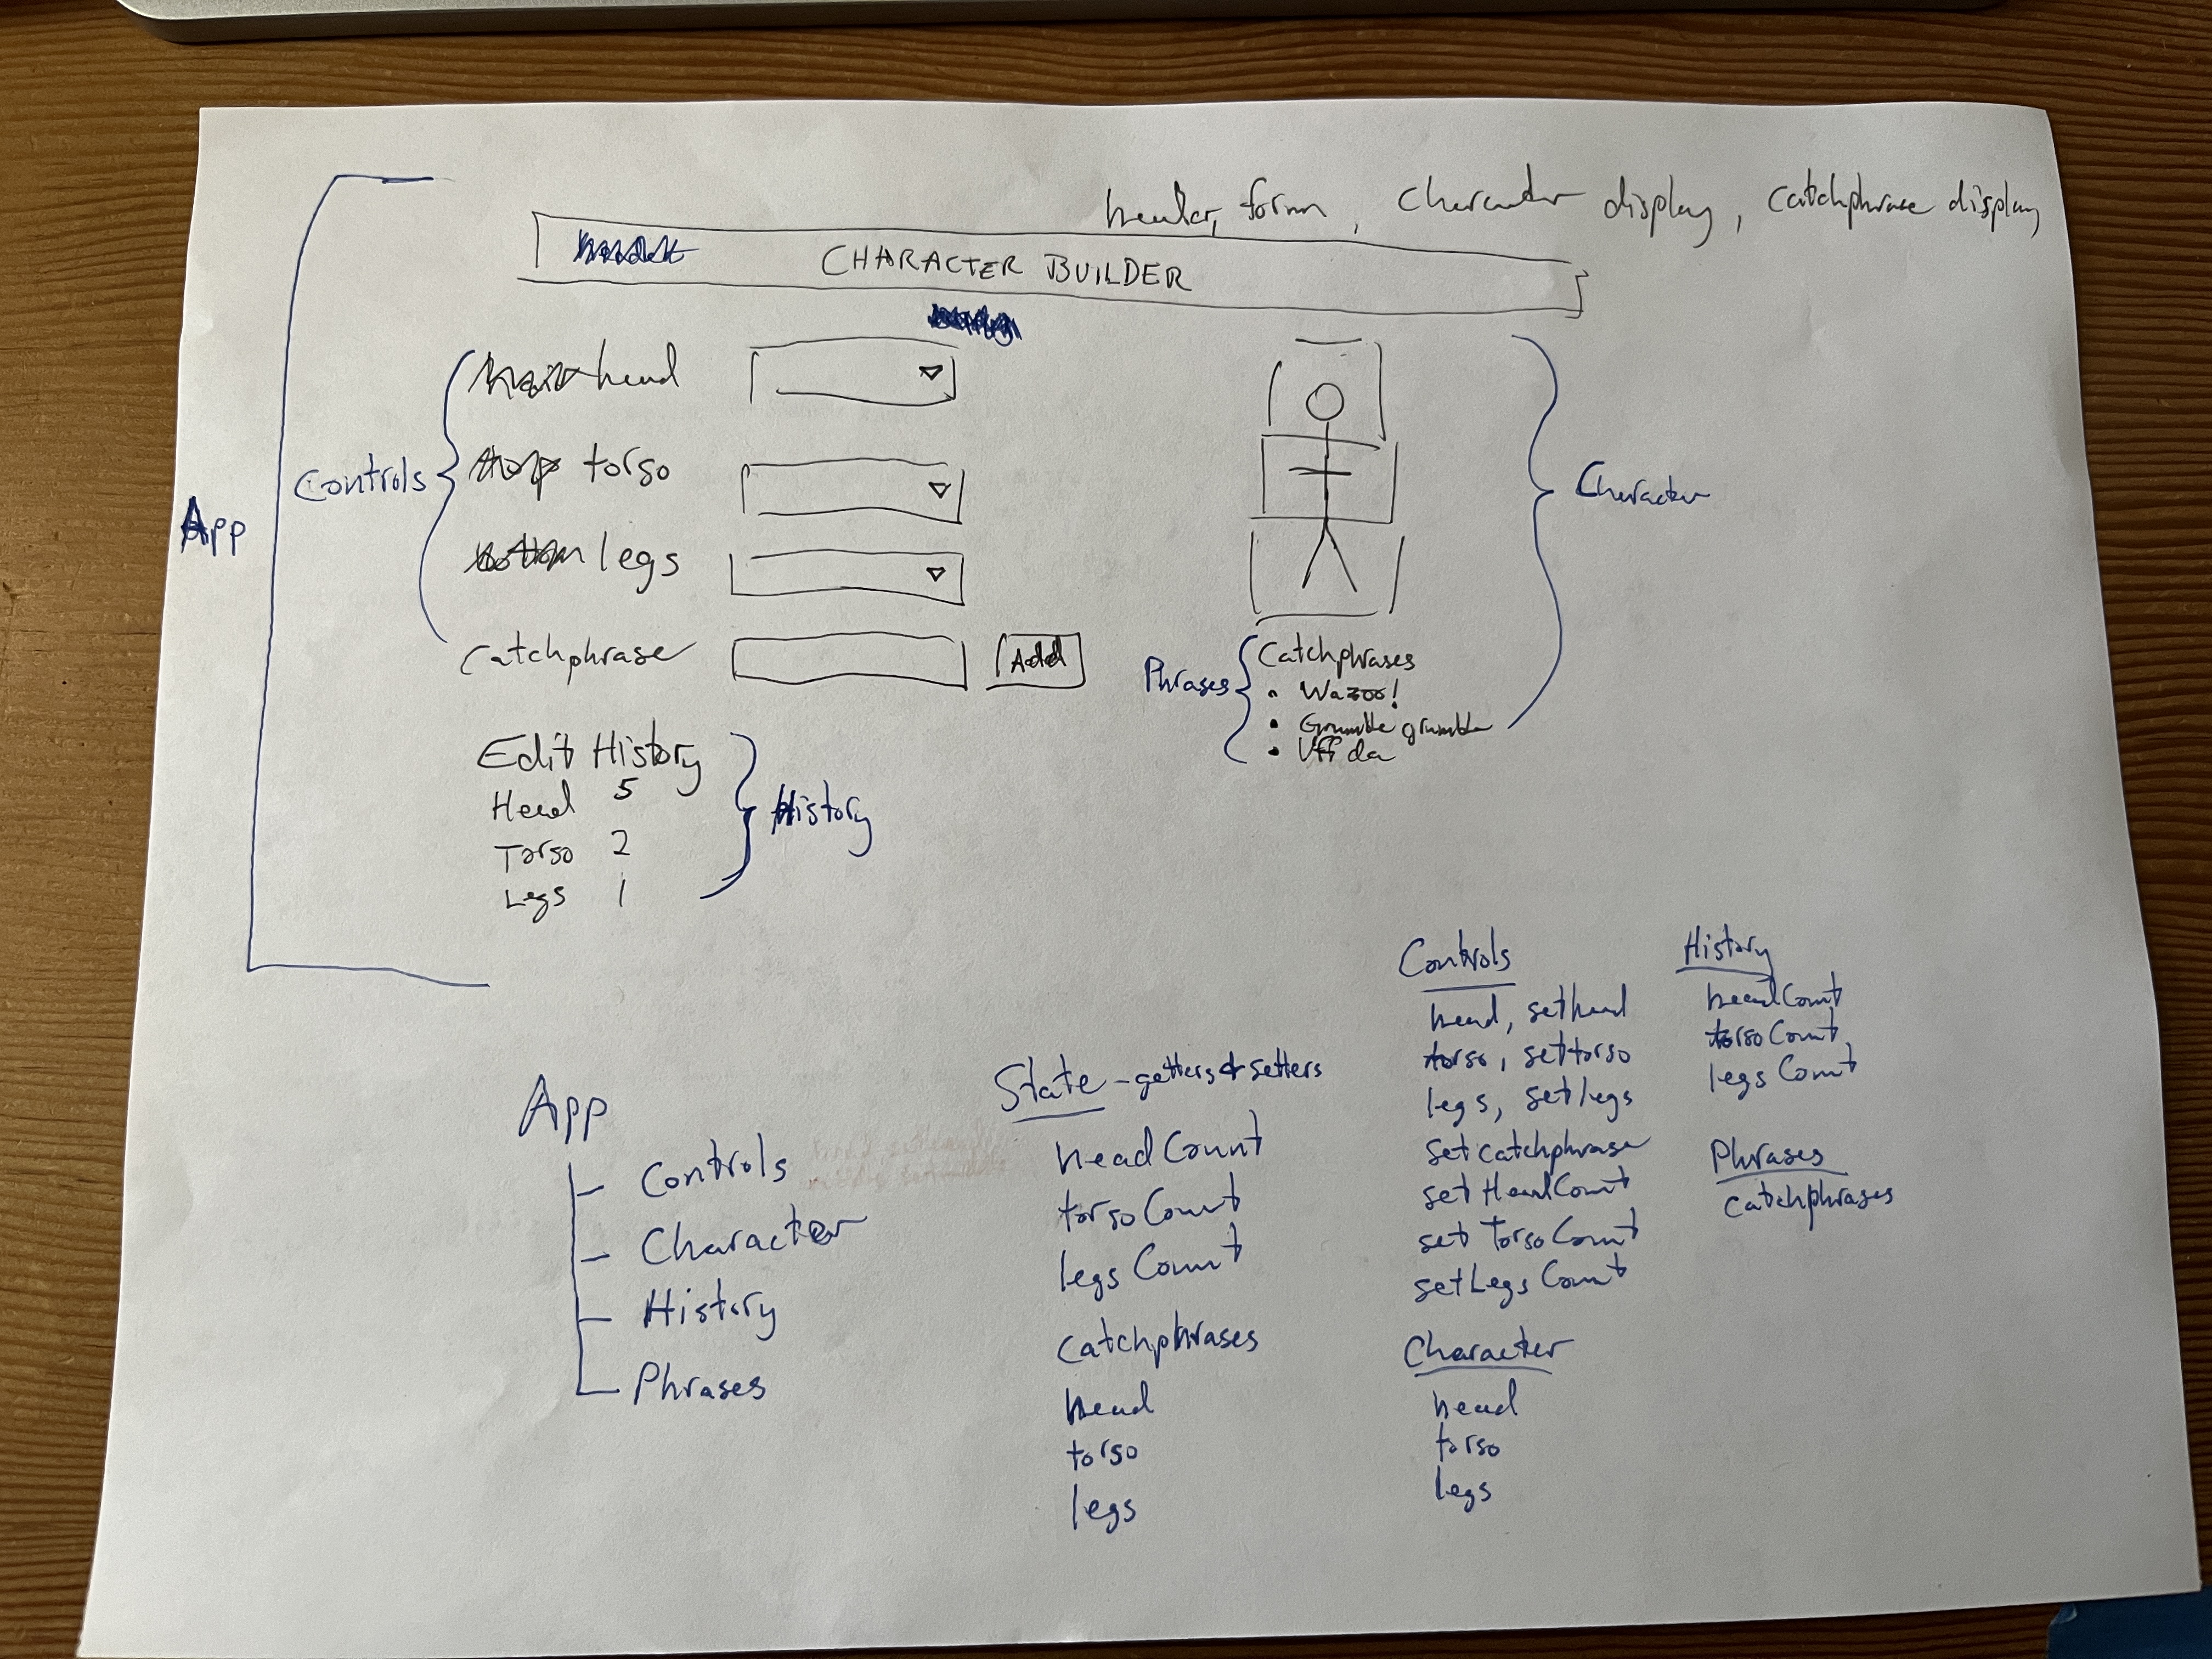 header, form, character display, catchphrase display
CHARACTER BUILDER
App
Controls
head
torso
legs
Catchphrase
Add
Character
Phrases
Catchphrases
• Wazoo!
• Grumble grumble
• Uff da
Edit History
Head 5
Torso 2
Legs 1
History
App
Controls
Character
History
Phrases
State - getters & setters
headCount
torsoCount
legsCount
catchphrases
head
torso
legs
Controls
head, sethead
torso, settorso
legs, setlegs
setcatchphrase
setHeadCount
setTorsoCount
setLegsCount
Character
head
torso
legs
History
headCount
torsoCount
legsCount
Phrases
catchphrases